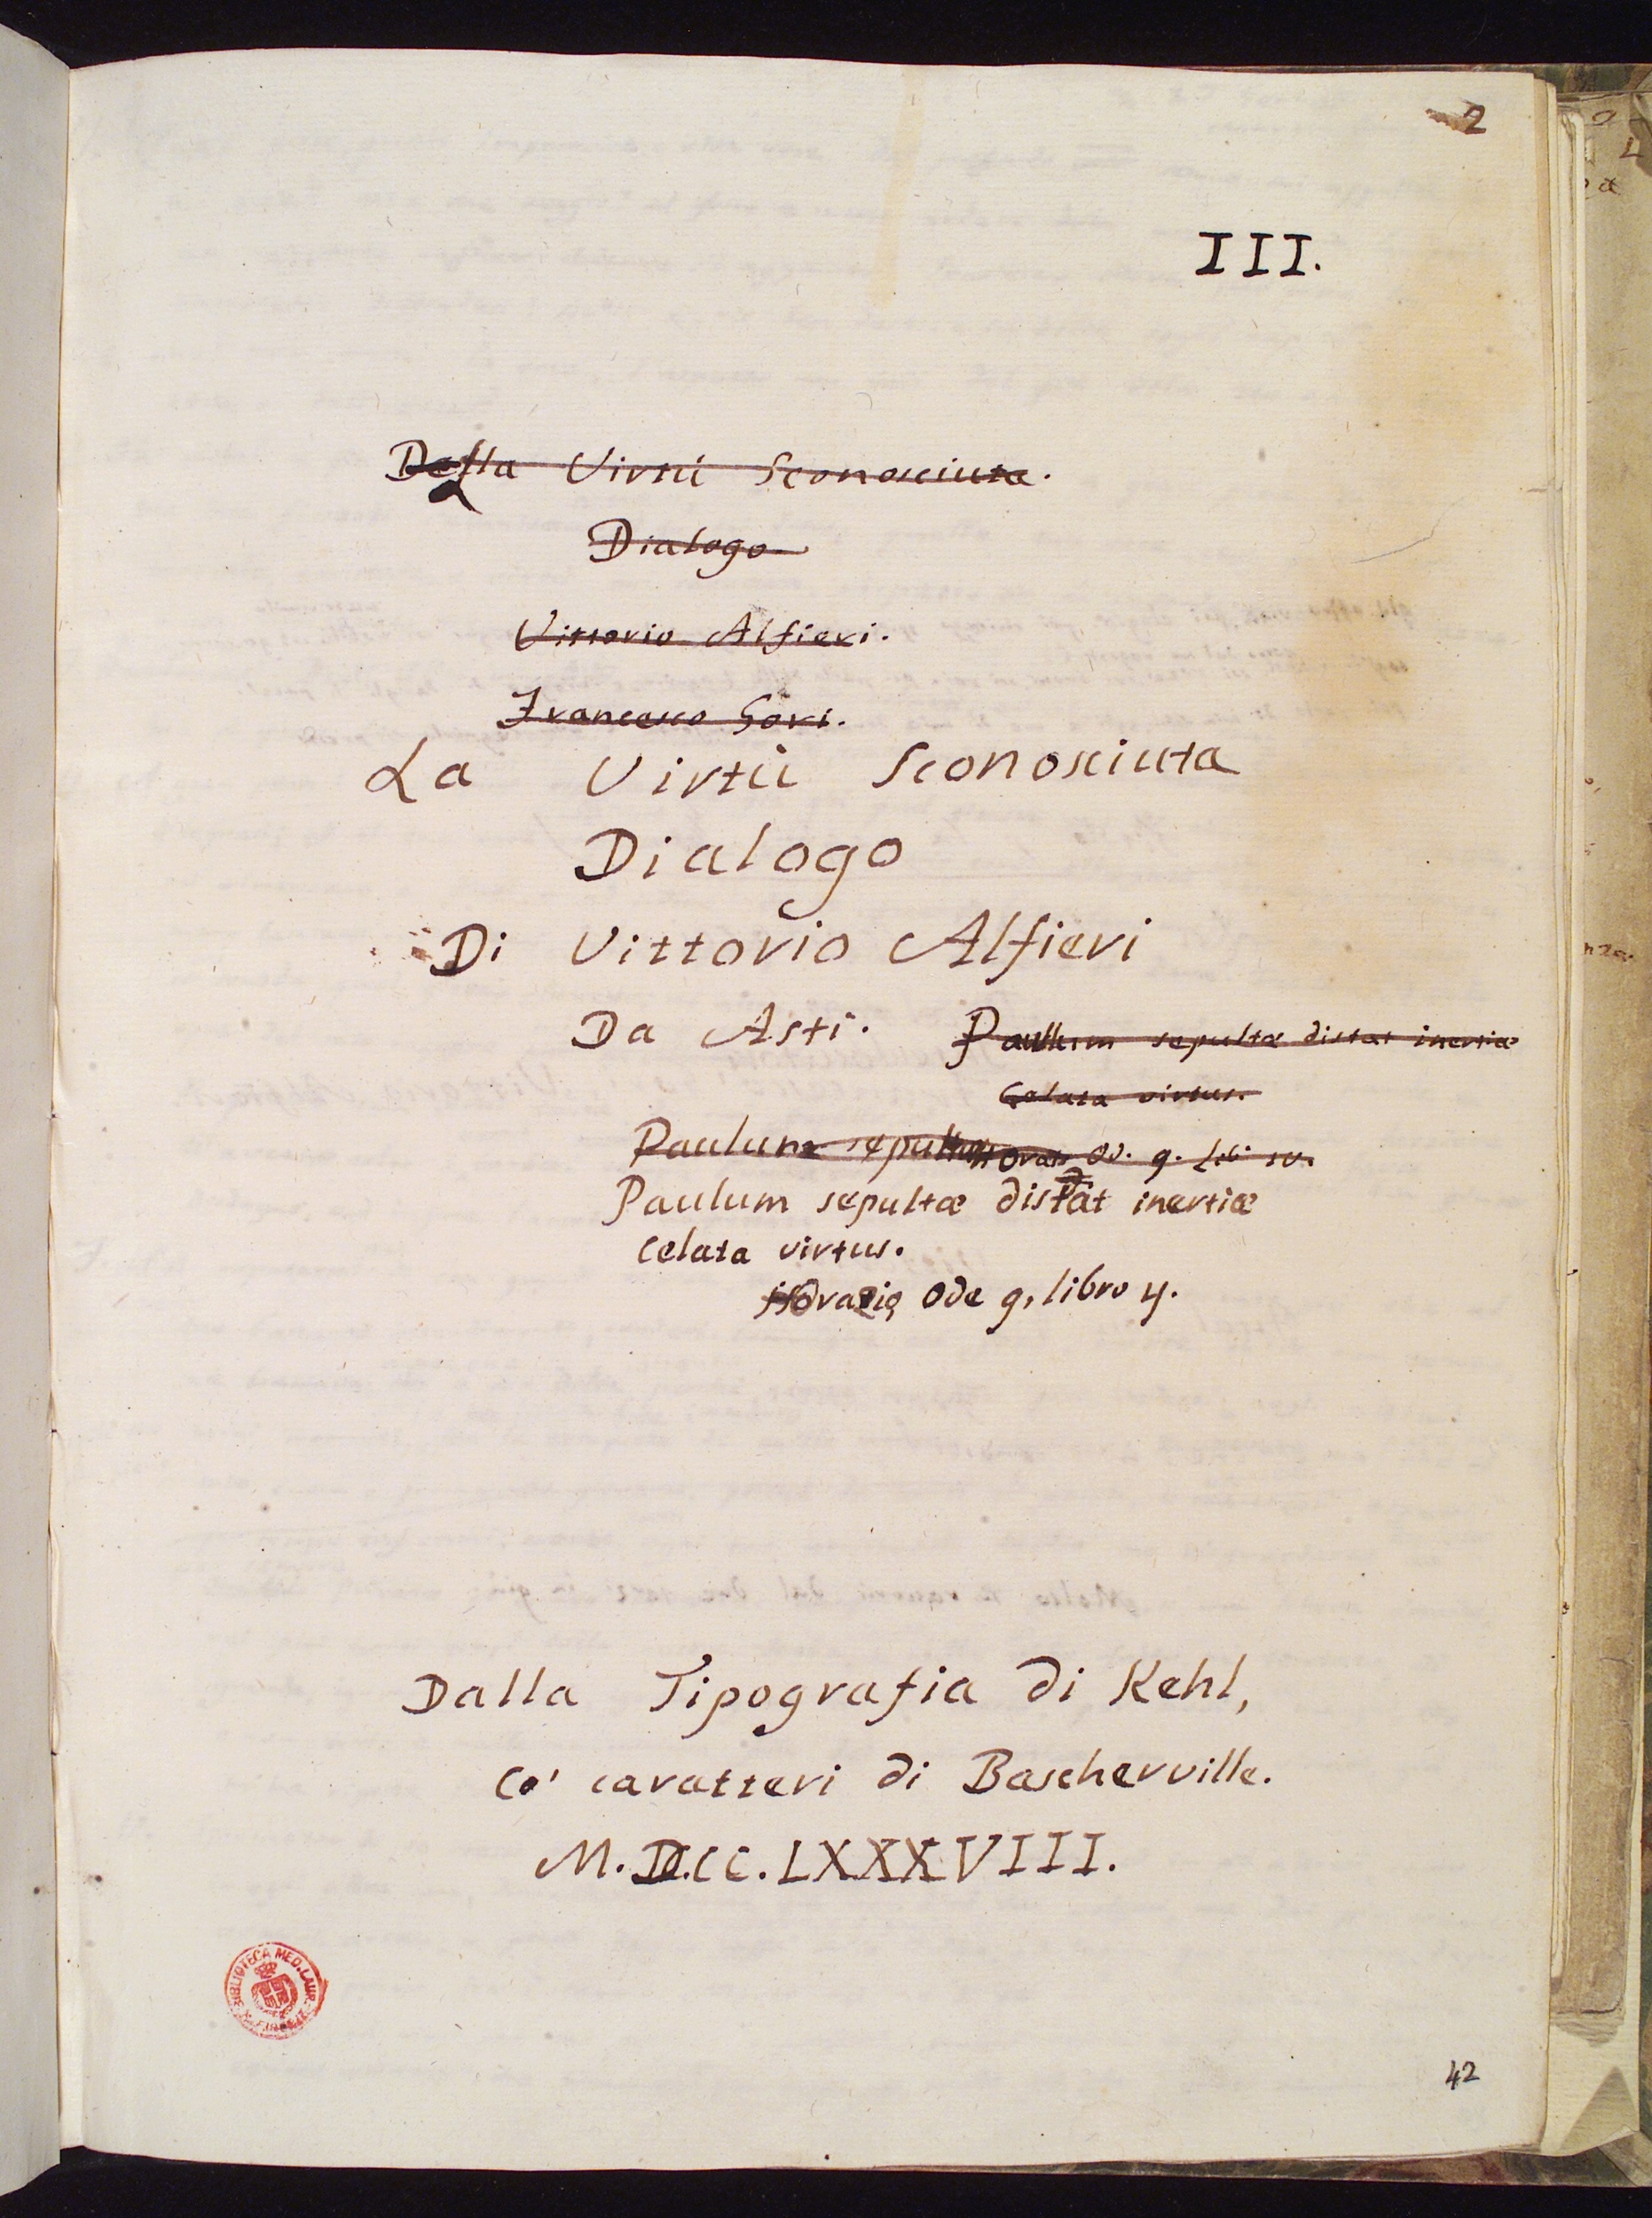 2
III.
Della Virtù Sconosciuta.
Dialogo
Vittorio Alfieri.
Francesco Gori.
La Virtù Sconosciuta
Dialogo
Di Vittorio Alfieri
Da Asti. Paullum sepultæ distat inertiæ
Celata virtus.
Paulum sepultæ Orat. Od. 9. Lib. IV.
Paulum sepultæ distat inertiæ
Celata virtus.
Orazio, Ode 9, libro 4.
Dalla Tipografia di Kehl,
Co' caratteri di Bascherville.
M.DCC.LXXXVIII.
BIBLIOTECA MED. LAUR. FIRENZE
42